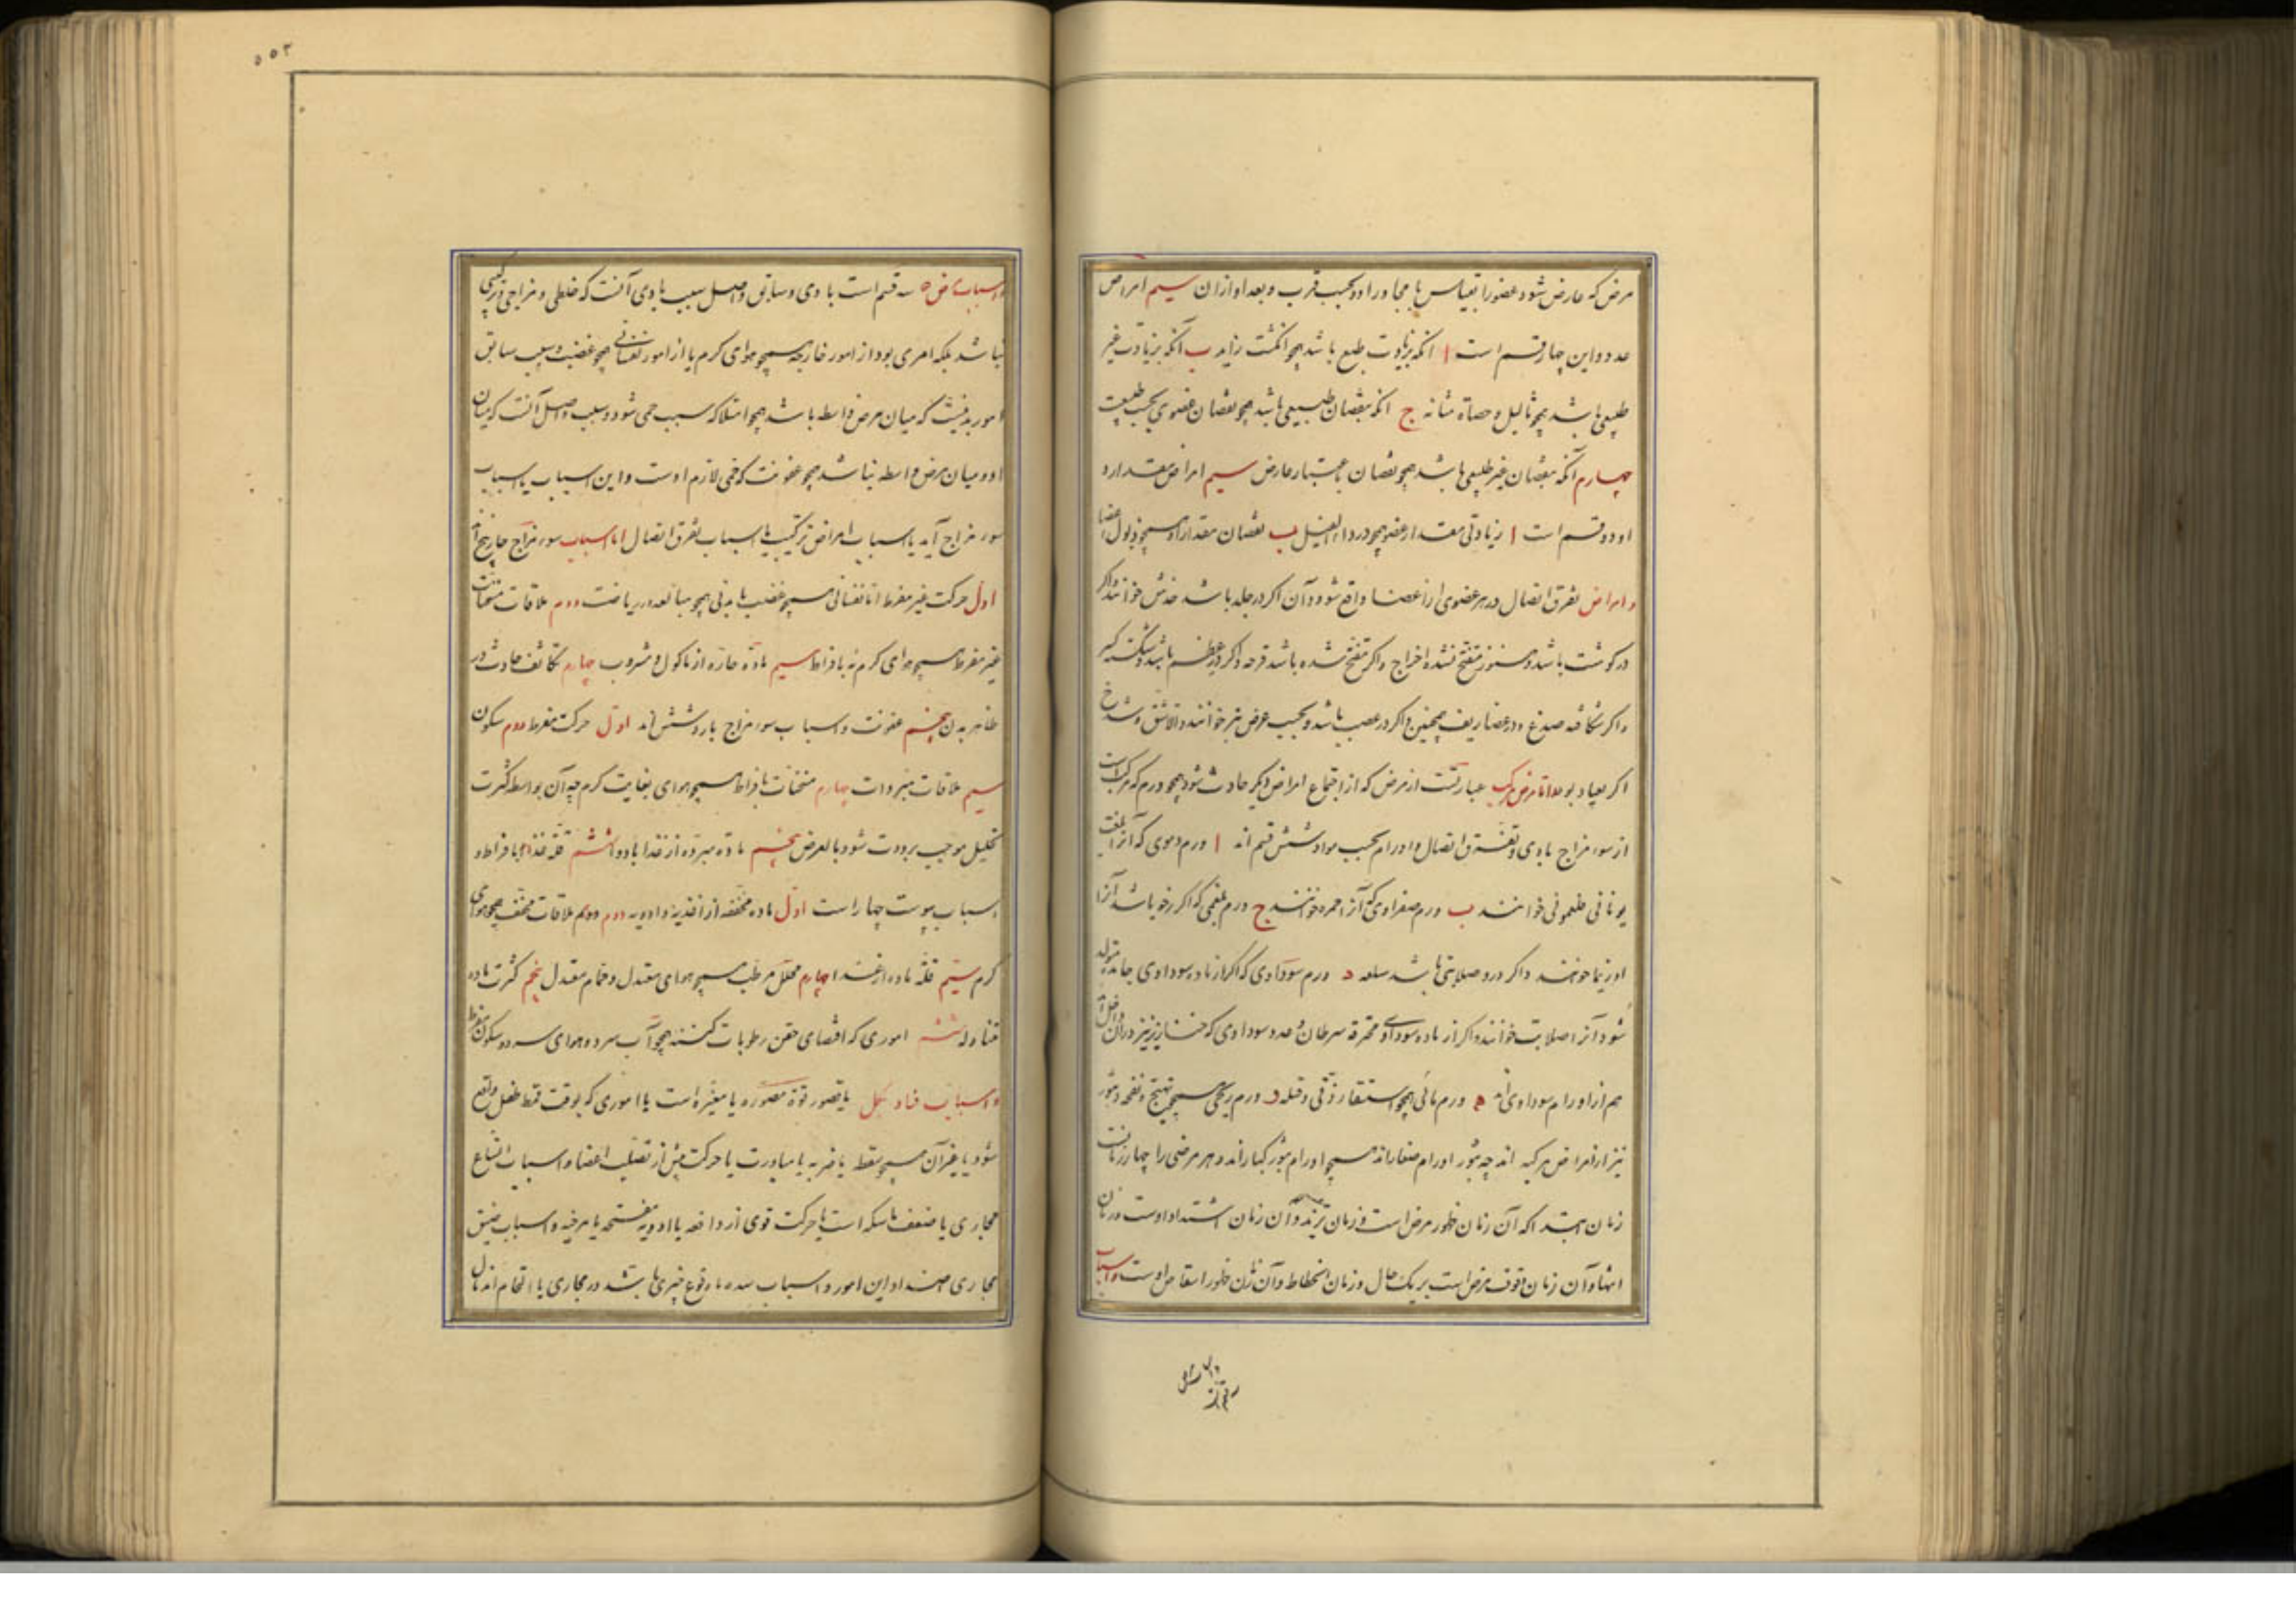 مرض که عارض شود عضو را بقیاس با مجاور او و بحسب قرب و بعد او ازان سیم امراض
عدد و این چهار قسم است ا آنکه بزیادت طبع باشد همچو انگشت زاید ب آنکه بزیادت غیر
طبیعی باشد همچو ثالیل و حصاة مثانه ج آنکه بنقصان طبیعی باشد همچو نقصان عضوی بحسب طبیعت
چهارم آنکه بنقصان غیر طبیعی باشد همچو نقصان باعتبار عارض سیم امراض مقدار و
او دو قسم است ا زیادتی مقدار عضو همچو در داء الفیل ب نقصان مقدار او همچو ذبول اعضا
و امراض تفرق اتصال در هر عضوی از اعضا واقع شود و آن اگر در جلد باشد خدش خوانند و اگر
در گوشت باشد و هنوز متقیح نشده اخراج و اگر متقیح شده باشد قرحه و اگر در عظم باشد و شکسته کسر
و اگر شکافته صدع و در غضاریف همچنین و اگر در عصب باشد و بحسب عرض بتر خوانند و الا شق و شدخ
اگر بسیار بود و اما مرض مرکب عبارتست از مرضی که از اجتماع امراض دیگر حادث شود همچو ورم که مرکب است
از سوء مزاج مادی و تفرق اتصال و اورام بحسب مواد شش قسم اند ا ورم دموی که آنرا بلغت
یونانی فلغمونی خوانند ب ورم صفراوی که آنرا حمره خوانند ج ورم بلغمی که اگر رخو باشد آنرا
اوزیما خوانند و اگر درو صلابتی باشد سلعه د ورم سوداوی که اگر از ماده سوداوی جامده متولد
شود آنرا صلابت خوانند و اگر از ماده سوداوی محترقه سرطان و غدد سوداوی که خنازیر نیز در آن داخل اند
هم از اورام سوداوی اند ه ورم مائی همچو استسقاء زقی و قیله و ورم ریحی همچو تهیج و نفخه و بثور
نیز از امراض مرکبه اند چه بثور اورام صغار اند همچو اورام بثور کبار اند و هر مرضی را چهار زمانست
زمان ابتدا که آن زمان ظهور مرض است و زمان تزید و آن زمان اشتداد اوست و زمان
انتها و آن زمان وقوف مرض است بر یک حال و زمان انحطاط و آن زمان ظهور انتقاص اوست و اسباب
۵۵۳
و اسباب مرض سه قسم است بادی و سابق و واصل سبب بادی آنست که خلطی و مزاجی و ترکیبی
نباشد بلکه امری بود از امور خارجه همچو هوای گرم یا از امور نفسانی همچو غضب و سبب سابق
امور بدنیست که میان مرض واسطه باشد همچو امتلا که سبب حمی شود و سبب واصل آنست که میان
او و میان مرض واسطه نباشد همچو عفونت که حمی لازم اوست و این اسباب یا اسباب
سوء مزاج آید یا اسباب امراض ترکیب یا اسباب تفرق اتصال اما اسباب سوء مزاج حار پنج اند
اول حرکت غیر مفرط اما نفسانی همچو غضب یا بدنی همچو مبالغه در ریاضت دوم ملاقات مسخنات
غیر مفرط همچو هوای گرم نه بافراط سیم ماده حاره از ماکول و مشروب چهارم تکاثف حادث در
ظاهر بدن پنجم عفونت و اسباب سوء مزاج بارد شش اند اول حرکت مفرط دوم سکون
سیم ملاقات مبردات چهارم مسخنات بافراط همچو هوای بغایت گرم چه آن بواسطه کثرت
تحلیل موجب برودت شود بالعرض پنجم ماده مبرده از غذا یا دوا ششم قلة غذا بافراط و
اسباب یبوست چهار است اول ماده مجففه از اغذیه و ادویه دوم دوم ملاقات مجفف همچو هوای
گرم سیم قلة ماده از غذا چهارم محلل مرطب همچو هوای معتدل و حمام معتدل پنجم کثرت ماده
متناوله ششم اموری که اقتضای حقن رطوبات کنند همچو آب سرد و هوای سرد و سکون مفرط
و اسباب فساد شکل یا قصور قوة مصوره یا مغیره است یا اموری که بوقت قمط طفل واقع
شود یا غیر آن همچو سقطه یا ضربه یا مبادرت یا حرکت پیش از تصلب اعضا و اسباب اتساع
مجاری یا ضعف ماسکه است یا حرکت قوی از دافعه یا ادویه مفتحه یا مرخیه و اسباب ضیق
مجاری اضداد این امور و اسباب سده یا وقوع چیزی باشد در مجاری یا التحام اندمال